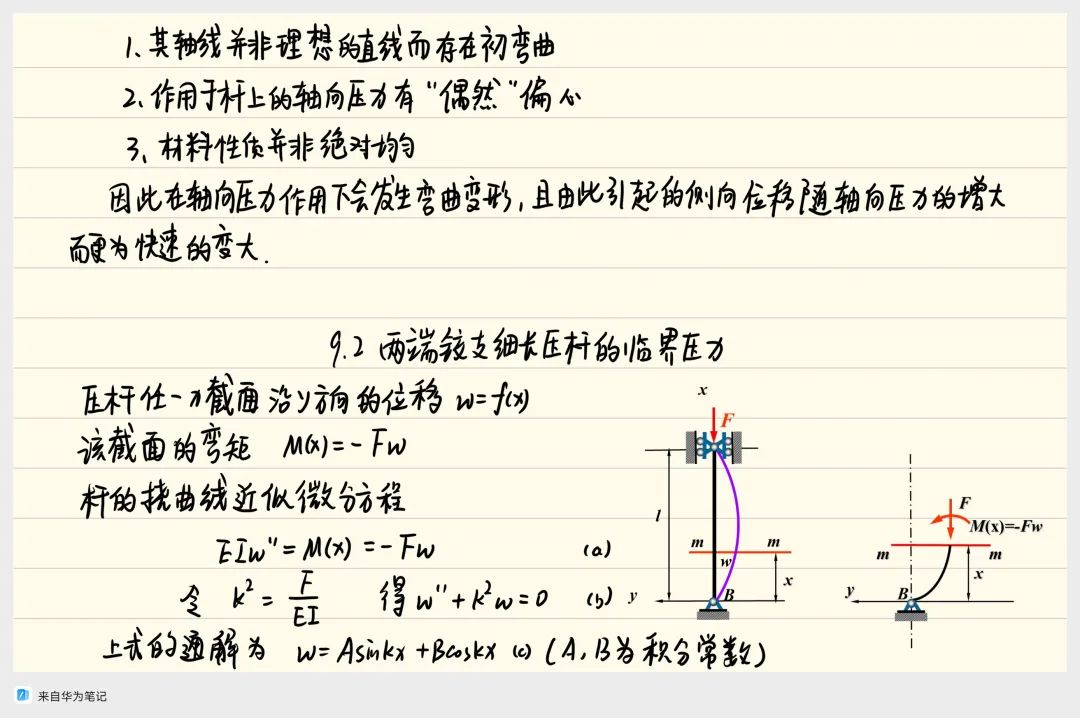 1、其轴线并非理想的直线而存在初弯曲
2、作用于杆上的轴向压力有“偶然”偏心
3、材料性质并非绝对均匀
因此在轴向压力作用下会发生弯曲变形,且由此引起的侧向位移随轴向压力的增大
而更为快速的变大.
9.2 两端铰支细长压杆的临界压力
压杆任一x截面沿y方向的位移 w=f(x)
该截面的弯矩 M(x)=-Fw
杆的挠曲线近似微分方程
EIw''=M(x)=-Fw (a)
令 k²=F/EI 得 w''+k²w=0 (b)
上式的通解为 w=Asinkx+Bcoskx (c) (A,B为积分常数)
x
F
l
m m
w
x
y B
F
M(x)=-Fw
m m
x
y B
来自华为笔记